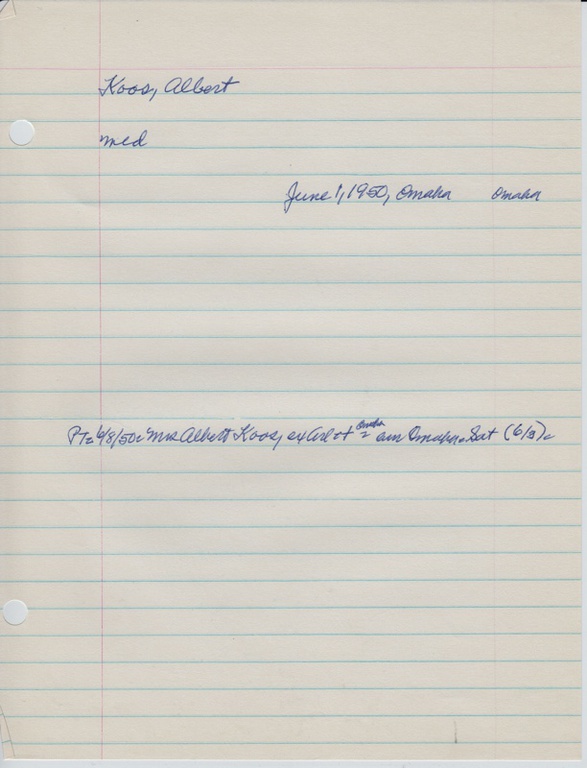 Koos, Albert
med
June 1, 1950, Omaha Omaha
Omaha
PT= 6/8/50= Mrs Albert Koos, ex Arlot = am Omaha. Sat (6/3)=